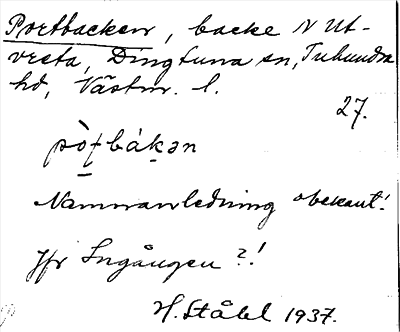 Portbacken, backe N Ut-
vresta, Dingtuna sn, Tuhundra
hd, Västm. l.
27.
pò̱rbákən
Namnanledning obekant!
Jfr Ingången?!
H. Ståhl 1937.